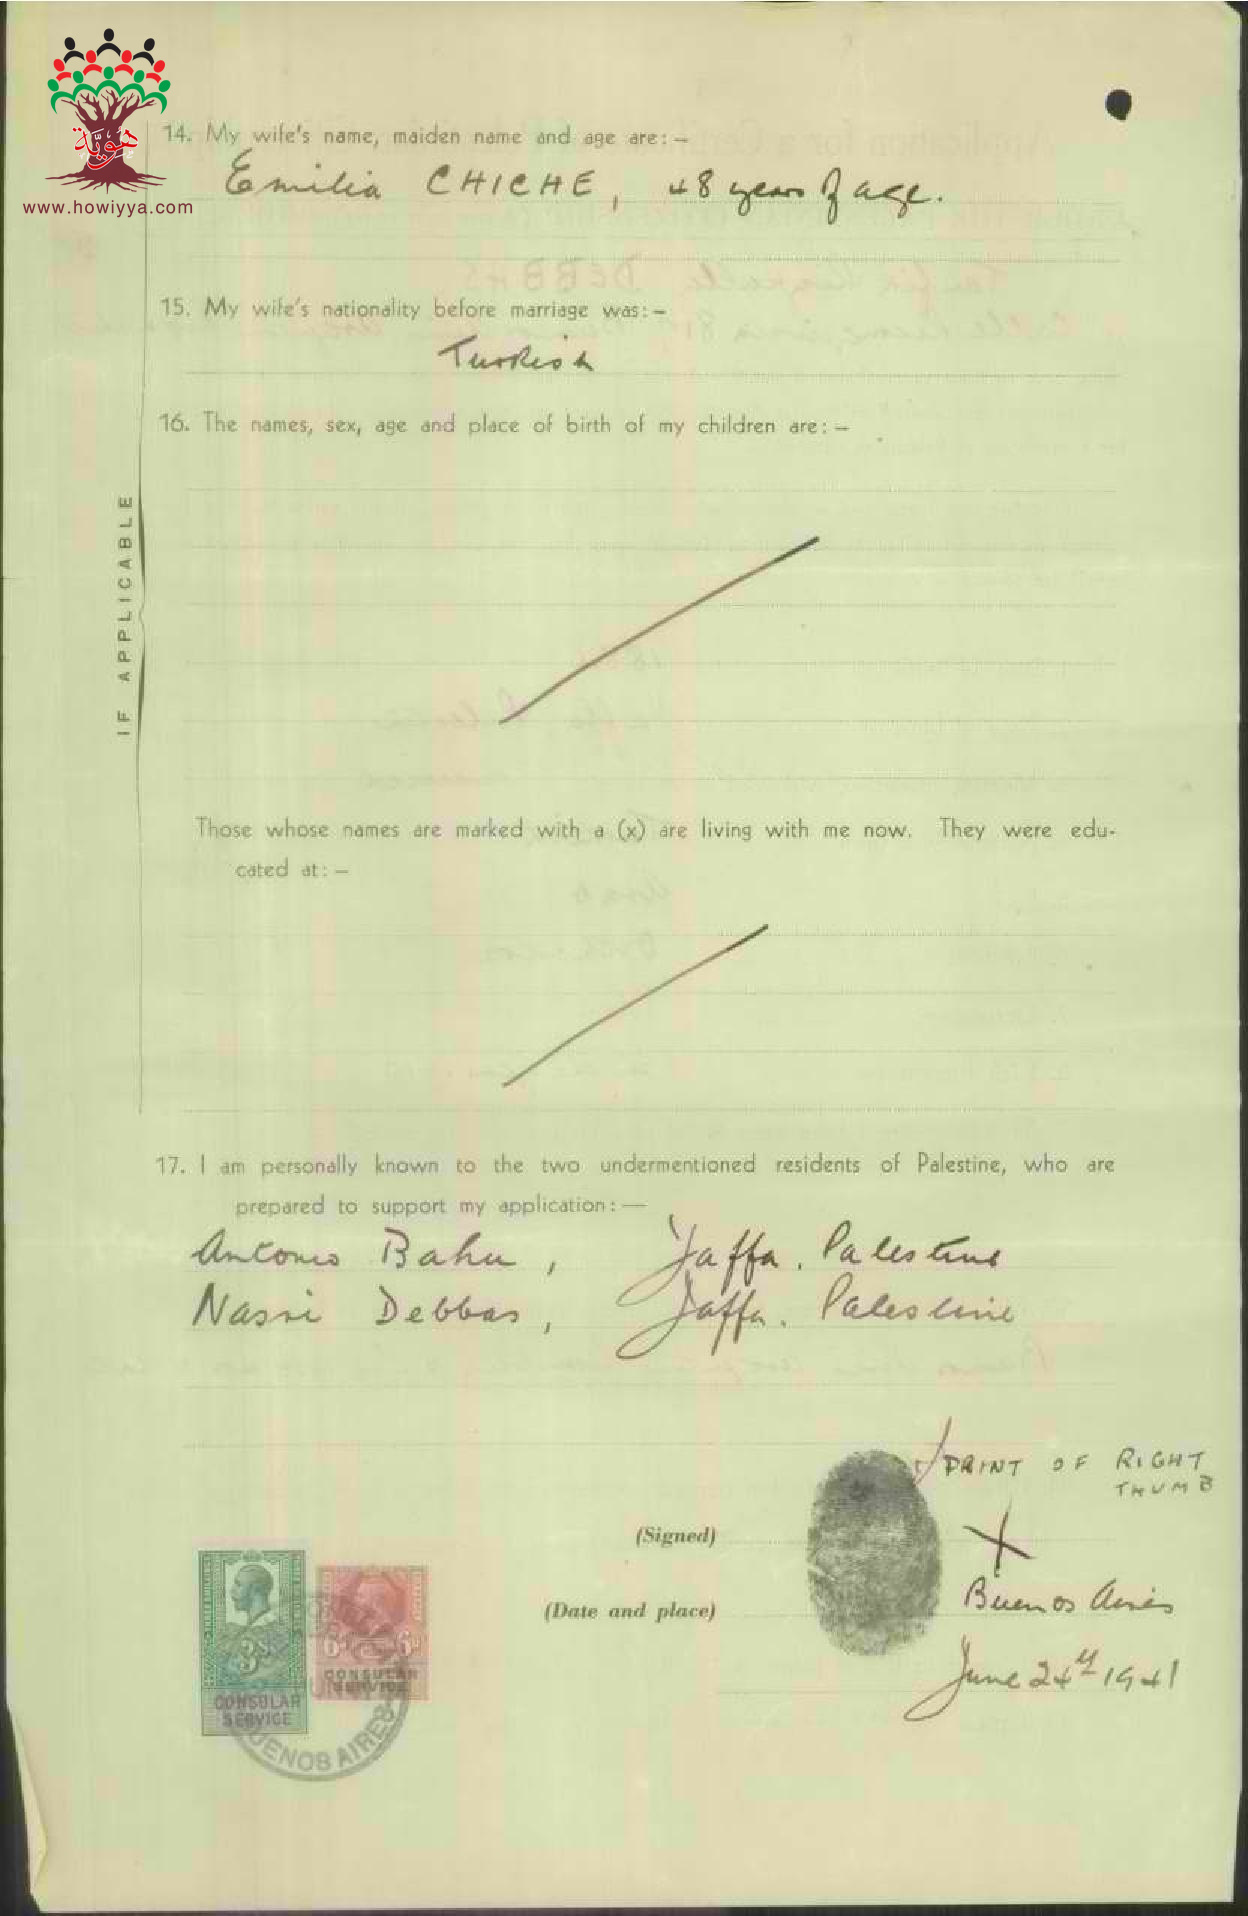 هوية
www.howiyya.com
14. My wife's name, maiden name and age are:–
Emilia CHICHE, 48 years of age.
15. My wife's nationality before marriage was:–
Turkish
16. The names, sex, age and place of birth of my children are:–
IF APPLICABLE
Those whose names are marked with a (x) are living with me now. They were edu-
cated at:–
17. I am personally known to the two undermentioned residents of Palestine, who are
prepared to support my application:—
Antonio Bahu, Jaffa. Palestine
Nasri Debbas, Jaffa. Palestine
PRINT OF RIGHT
THUMB
(Signed) X
(Date and place) Buenos Aires
June 24th 1941
3s
CONSULAR
SERVICE
6d 6d
CONSULAR
SERVICE
BUENOS AIRES